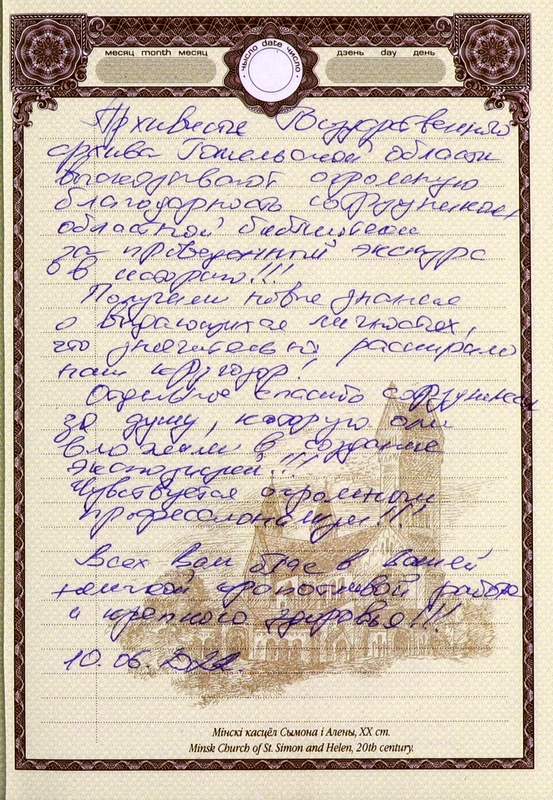 месяц month месяц
чысло date число
дзень day день
Архивисты Государственного
архива Гомельской области
высказывают огромную
благодарность сотрудникам
областной библиотеки
за проведенный экскурс
в историю!!!
Получены новые знания
о выдающихся личностях,
что значительно расширило
наш кругозор!
Отдельное спасибо сотрудникам
за душу, которую они
вложили в создание
экспозиций!!!
Чувствуется огромный
профессионализм!!!
Всех вам благ в вашей
нелегкой кропотливой работе
и крепкого здоровья!!!
10.06.2022
Мінскі касцёл Сымона і Алены, XX ст.
Minsk Church of St. Simon and Helen, 20th century.